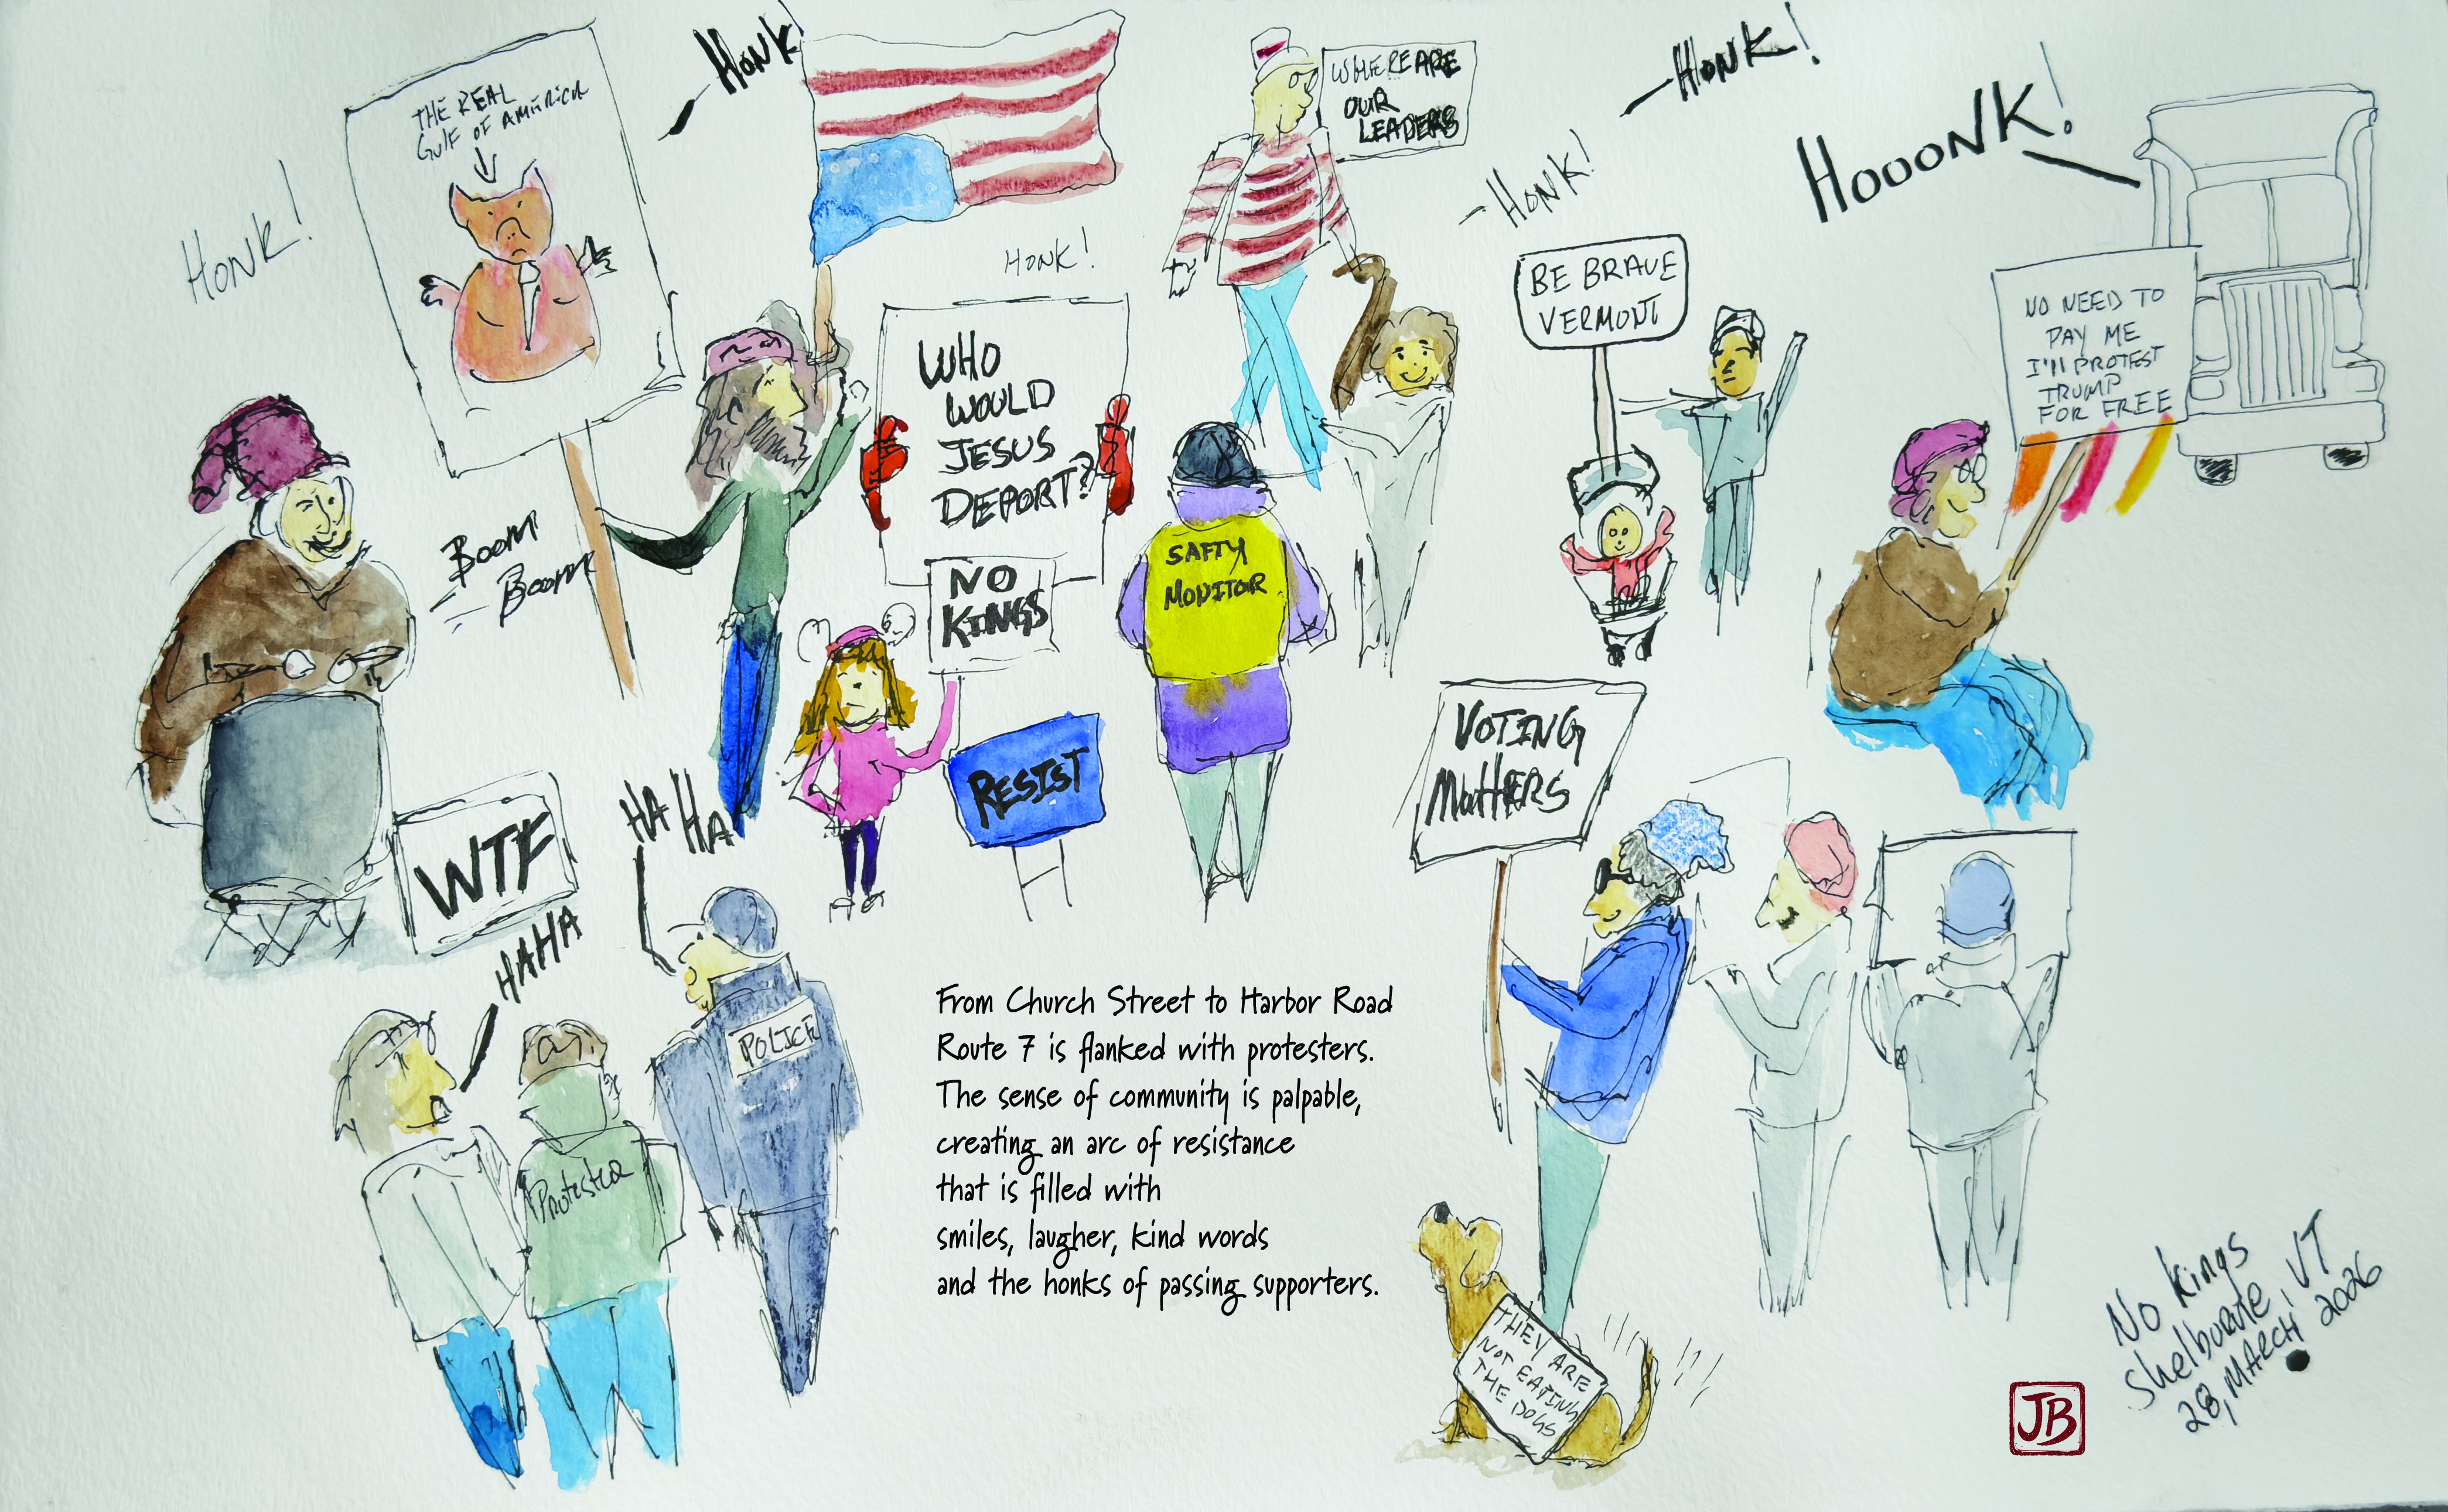 HONK!
THE REAL
GULF OF AMERICA
HONK!
WHERE ARE
OUR
LEADERS
HONK!
HONK!
HOOONK!
HONK!
BE BRAVE
VERMONT
NO NEED TO
PAY ME
I'll PROTEST
TRUMP
FOR FREE
WHO
WOULD
JESUS
DEPORT?
BOOM
BOOM
SAFTY
MONITOR
NO
KINGS
RESIST
VOTING
MattERS
WTF
HA HA
HAHA
POLICE
Protester
From Church Street to Harbor Road
Route 7 is flanked with protesters.
The sense of community is palpable,
creating an arc of resistance
that is filled with
smiles, laugher, kind words
and the honks of passing supporters.
THEY ARE
NOT EATING
THE DOGS
No Kings
Shelburne, VT
28, MARCH 2026
JB